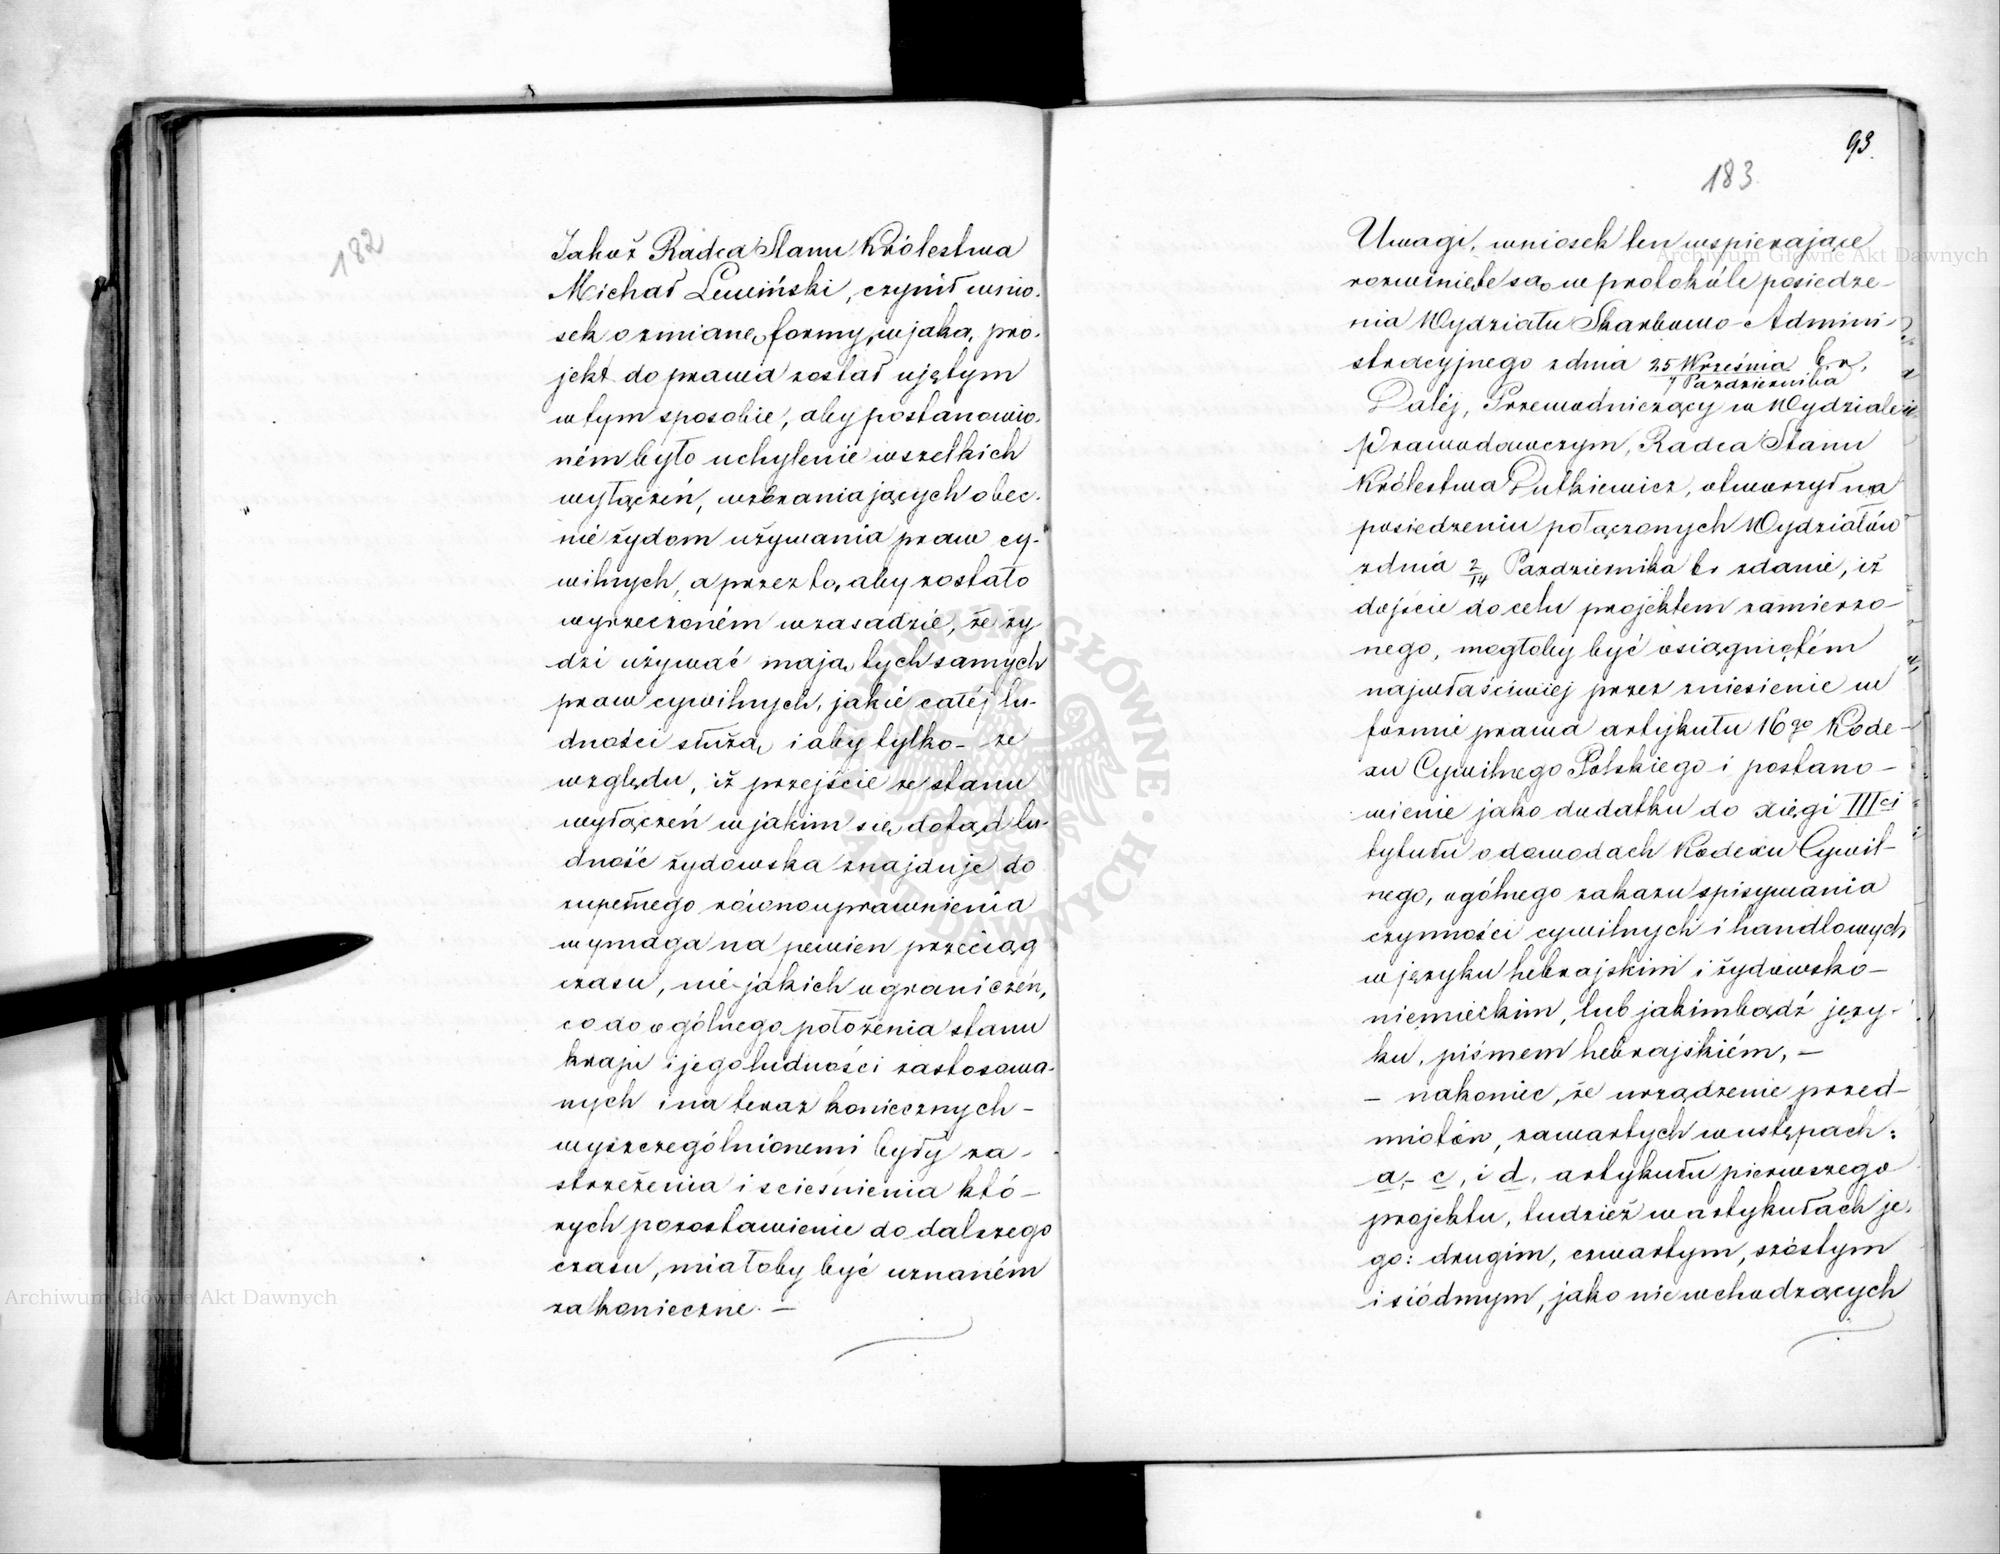 182
Jakoż Radca Stanu Królestwa
Michał Lewiński, czynił wnio-
sek o zmianę formy, w jaką, pro-
jekt do prawa został ujętym
w tym sposobie, aby postanowio-
ném było uchylenie wszelkich
wyłączeń, wzbraniających obec-
nie żydom używania praw cy-
wilnych, a przez to, aby zostało
wyrzeczoném w zasadzie, że ży-
dzi używać mają, tych samych
praw cywilnych, jakie całéj lu-
dności służą, i aby tylko – ze
względu, iż przejście ze stanu
wyłączeń w jakim się dotąd lu-
dność żydowska znajduje do
zupełnego równouprawnienia
wymaga na pewien przeciąg
czasu, niejakich ograniczeń,
co do ogólnego położenia stanu
kraju i jego ludności zastosowa-
nych i na teraz koniecznych –
wyszczególnionemi były za-
strzeżenia i scieśnienia któ-
rych pozostawienie do dalszego
czasu, miałoby być uznaném
za konieczne. –
93.
183.
Uwagi, wniosek ten wspierające
rozwinięte są, w protokóle posiedze-
nia Wydziału Skarbowo-Admini-
stracyjnego z dnia 25 Września / 7 Października b. r.
Daléj, Przewodniczący w Wydziale
Prawodawczym, Radca Stanu
Królestwa Dutkiewicz, otworzył na
posiedzeniu połączonych Wydziałów
z dnia 2/14 Października br zdanie, iż
dojście do celu projektem zamierzo-
nego, mogłoby być osiągniętém
najwłaściwiej przez zniesienie w
formie prawa artykułu 16go Kode-
xu Cywilnego Polskiego i postano-
wienie jako dodatku do xięgi IIIci
tytułu o dowodach Kodexu Cywil-
nego, ogólnego zakazu spisywania
czynności cywilnych i handlowych
w języku hebrajskim i żydowsko-
niemieckim, lub jakimbądź języ-
ku, pismem hebrajskiém, –
– nakoniec, że urządzenie przed-
miotów, zawartych w ustępach:
a,- c, i d, artykułu pierwszego
projektu, tudzież w artykułach je-
go: drugim, czwartym, szóstym
i siódmym, jako nie wchodzących
Archiwum Główne Akt Dawnych
Archiwum Główne Akt Dawnych
ARCHIWUM GŁÓWNE AKT DAWNYCH